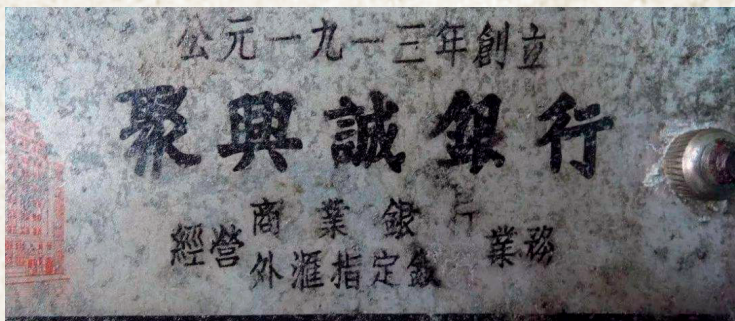 公元一九一三年創立
聚興誠銀行
經營 商業銀行 業務
外滙指定銀